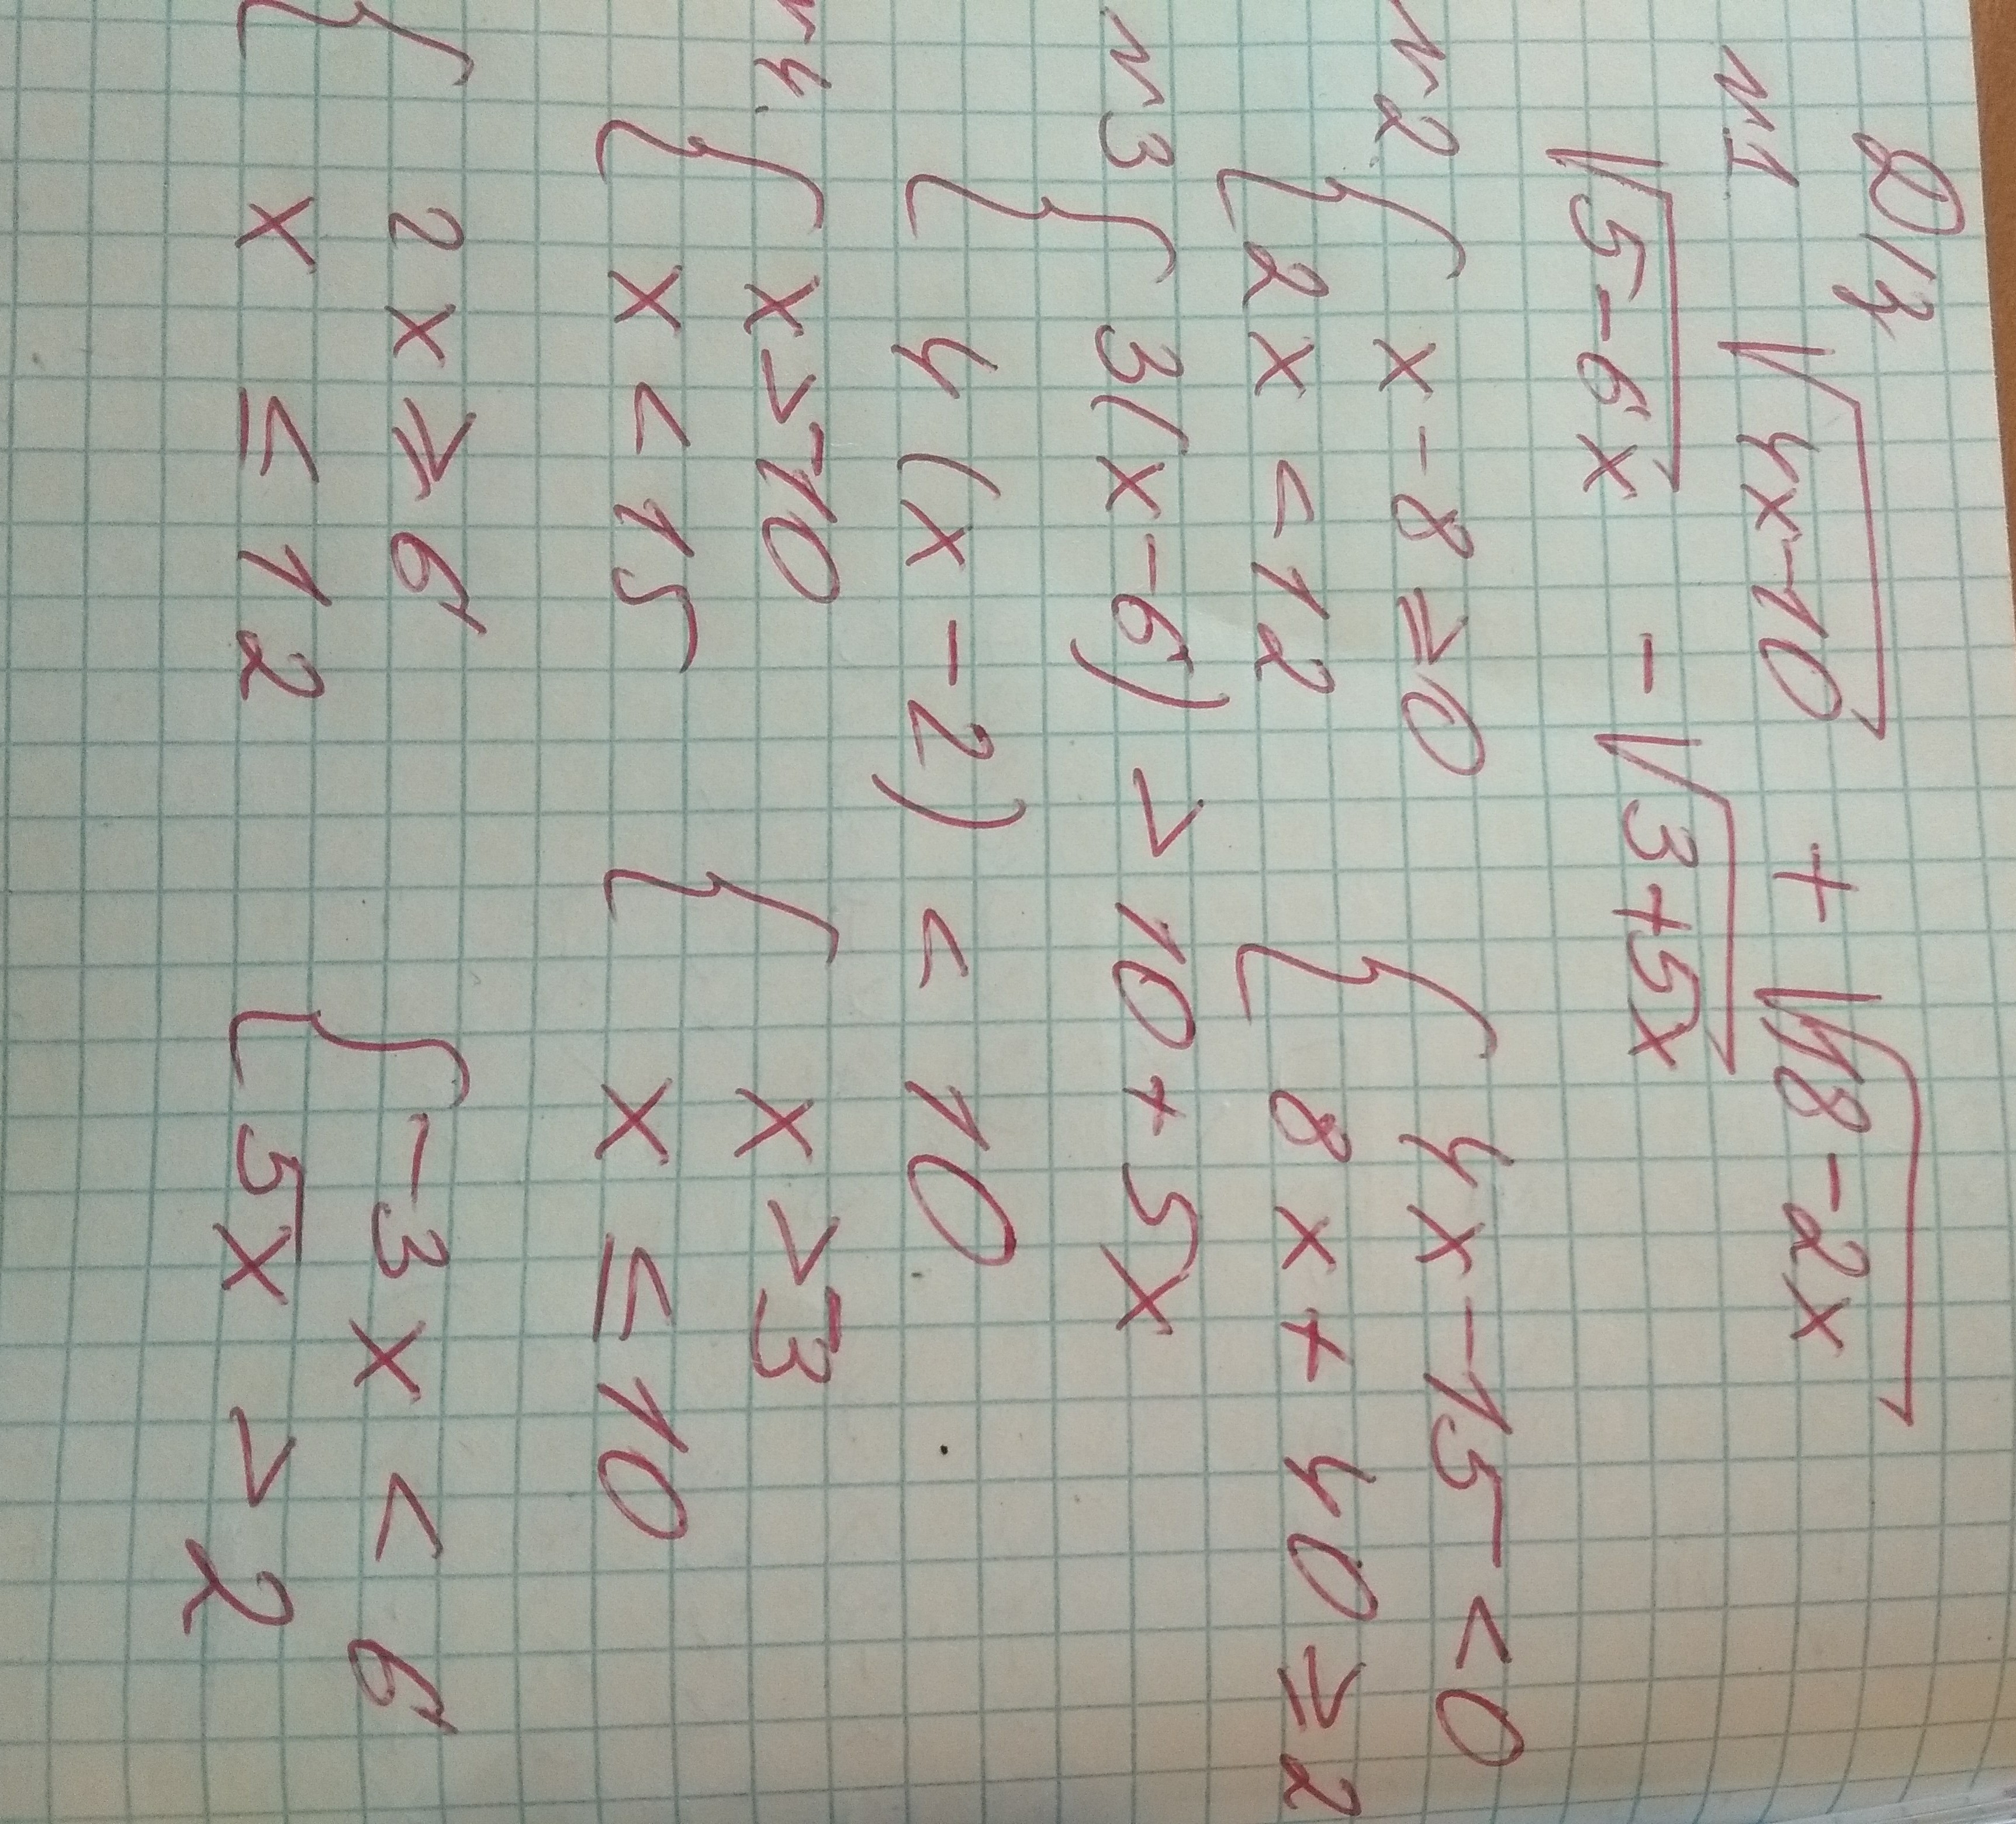 Д/з
№1. √4x-10 + √18-2x
√5-6x - √3+5x
№2. { x-8⩾0 { 4x-15<0
2x<12 8x+40⩾2
№3 { 3(x-6)>10+5x
4(x-2)<10
№4. { x>-10 { x>3
x<15 x≤10
{ 2x⩾6 { -3x<6
x≤12 5x>2